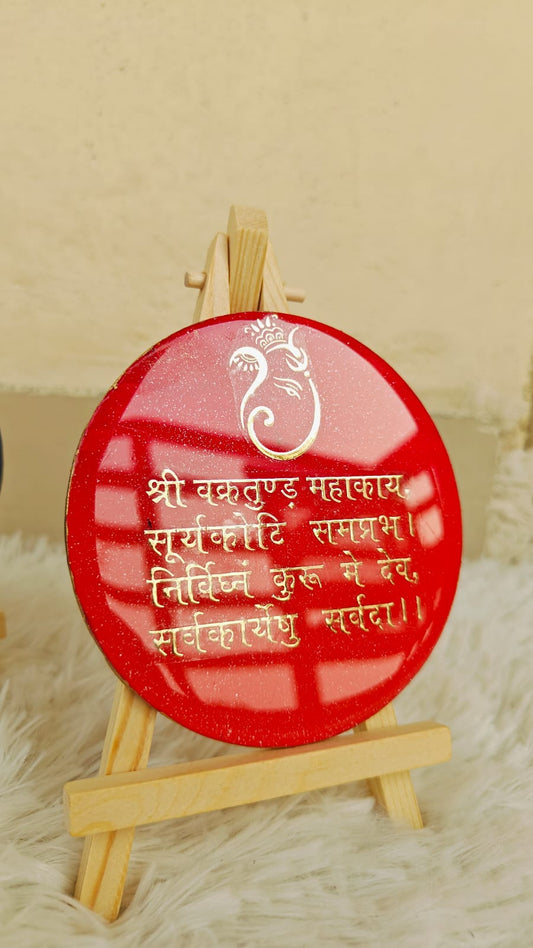 श्री वक्रतुण्ड़ महाकाय,
सूर्यकोटि समप्रभ।
निर्विघ्नं कुरू मे देव,
सर्वकार्येषु सर्वदा।।